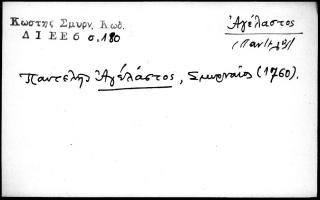 Κωστης Σμυρν. Κωδ.
Δ Ι Ε Ε 6 σ. 180
Ἀγέλαστος
(Παντελῆς)
Παντελῆς Ἀγέλάστος, Σμυρναῖος (1760).